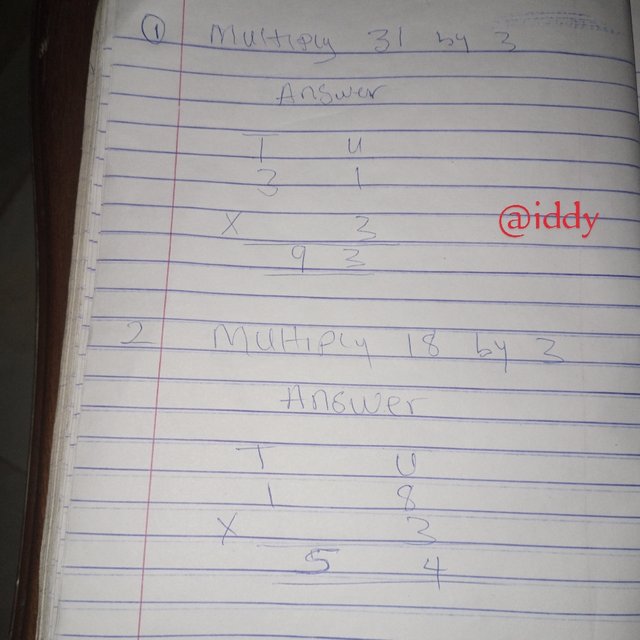 ① Multiply 31 by 3
Answer
T U
3 1
@iddy
X 3
9 3
2 Multiply 18 by 3
Answer
T U
1 8
X 3
5 4